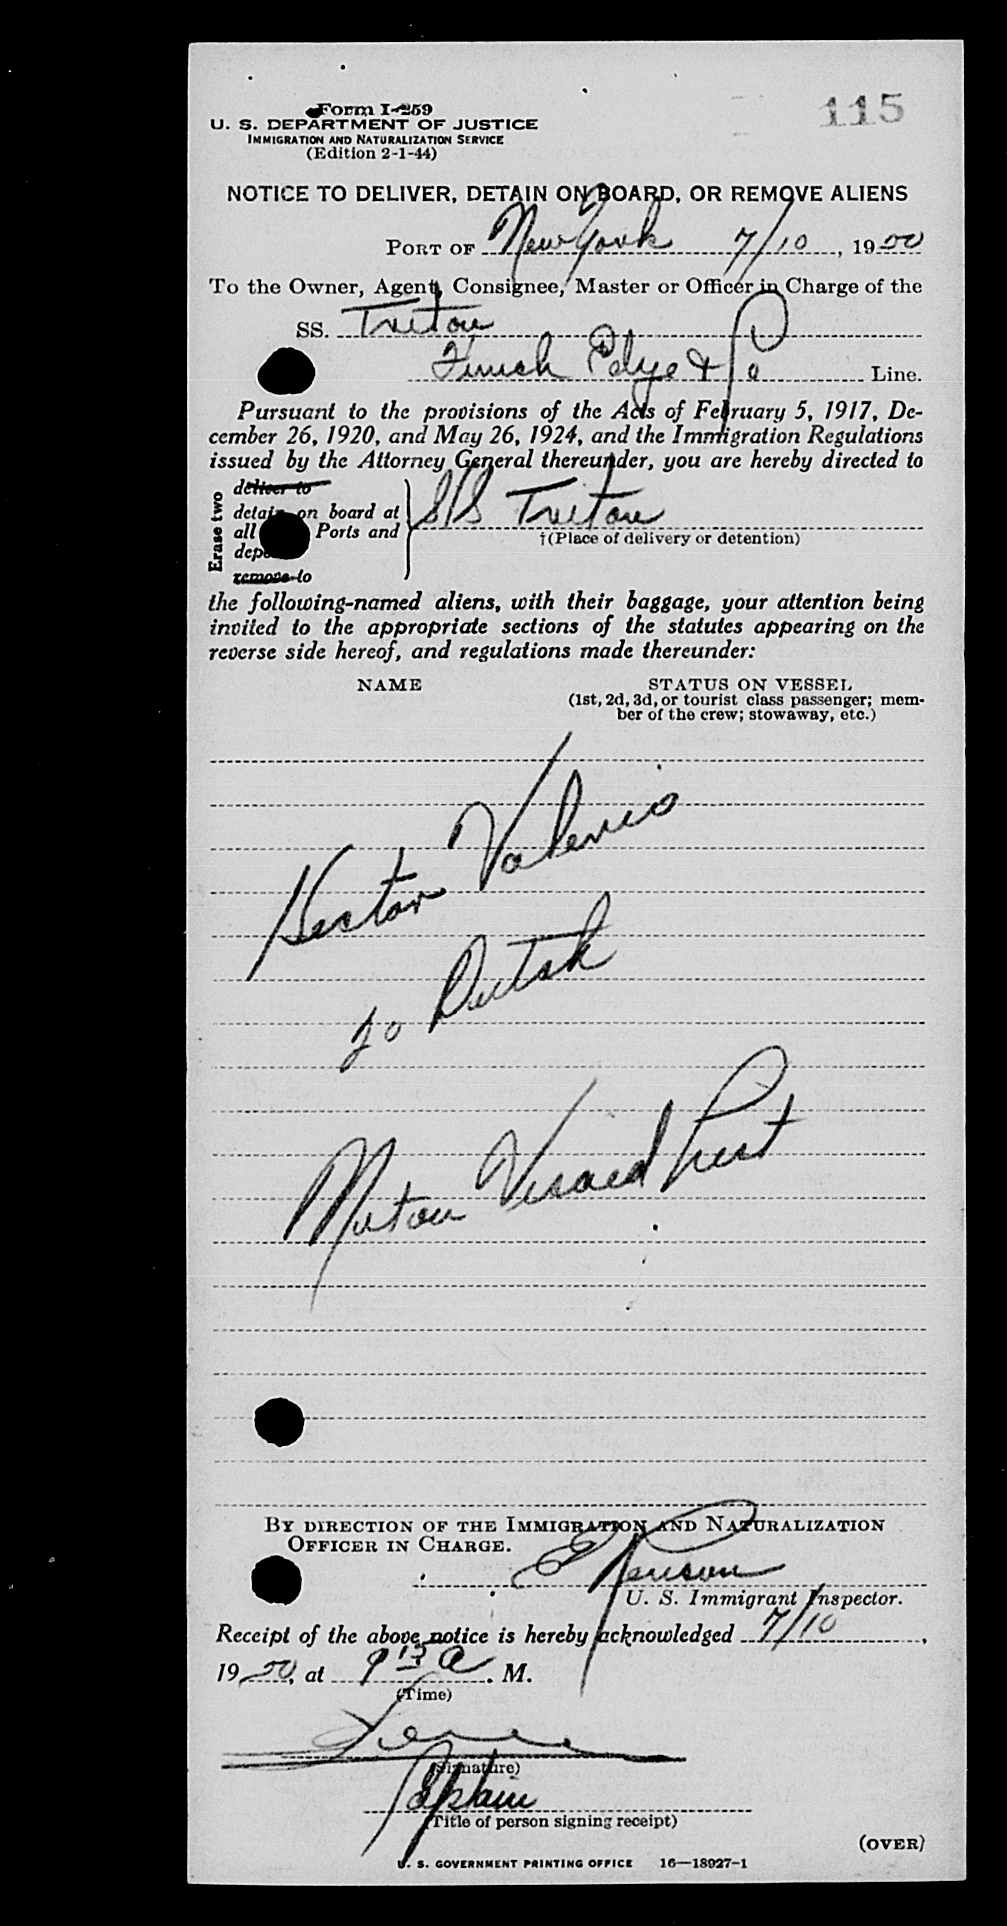 115
Form I-259
U. S. DEPARTMENT OF JUSTICE
IMMIGRATION AND NATURALIZATION SERVICE
(Edition 2-1-44)
NOTICE TO DELIVER, DETAIN ON BOARD, OR REMOVE ALIENS
PORT OF New York 7/10, 1950
To the Owner, Agent, Consignee, Master or Officer in Charge of the
SS. Triton
& Co Line.
Pursuant to the provisions of the Acts of February 5, 1917, De-
cember 26, 1920, and May 26, 1924, and the Immigration Regulations
issued by the Attorney General thereunder, you are hereby directed to
Erase two
deliver to
detain on board at S/S Triton
all Ports and †(Place of delivery or detention)
remove to
the following-named aliens, with their baggage, your attention being
invited to the appropriate sections of the statutes appearing on the
reverse side hereof, and regulations made thereunder:
NAME STATUS ON VESSEL
(1st, 2d, 3d, or tourist class passenger; mem-
ber of the crew; stowaway, etc.)
Hector Valerio
20 Dutch
BY DIRECTION OF THE IMMIGRATION AND NATURALIZATION
OFFICER IN CHARGE.
U. S. Immigrant Inspector.
Receipt of the above notice is hereby acknowledged 7/10,
1950, at 9 15 A. M.
(Time)
(Signature)
Captain
(Title of person signing receipt)
(OVER)
U. S. GOVERNMENT PRINTING OFFICE 16—18927-1